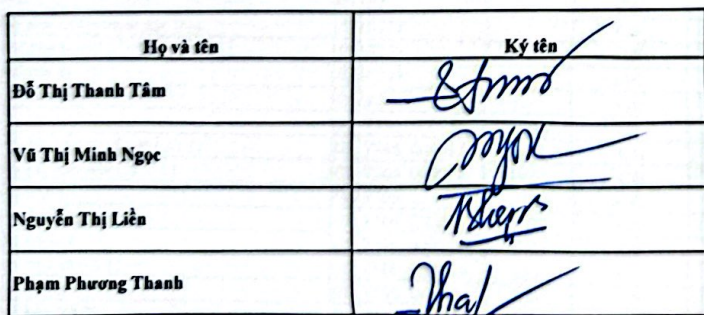 Họ và tên Ký tên
Đỗ Thị Thanh Tâm
Vũ Thị Minh Ngọc
Nguyễn Thị Liền
Phạm Phương Thanh